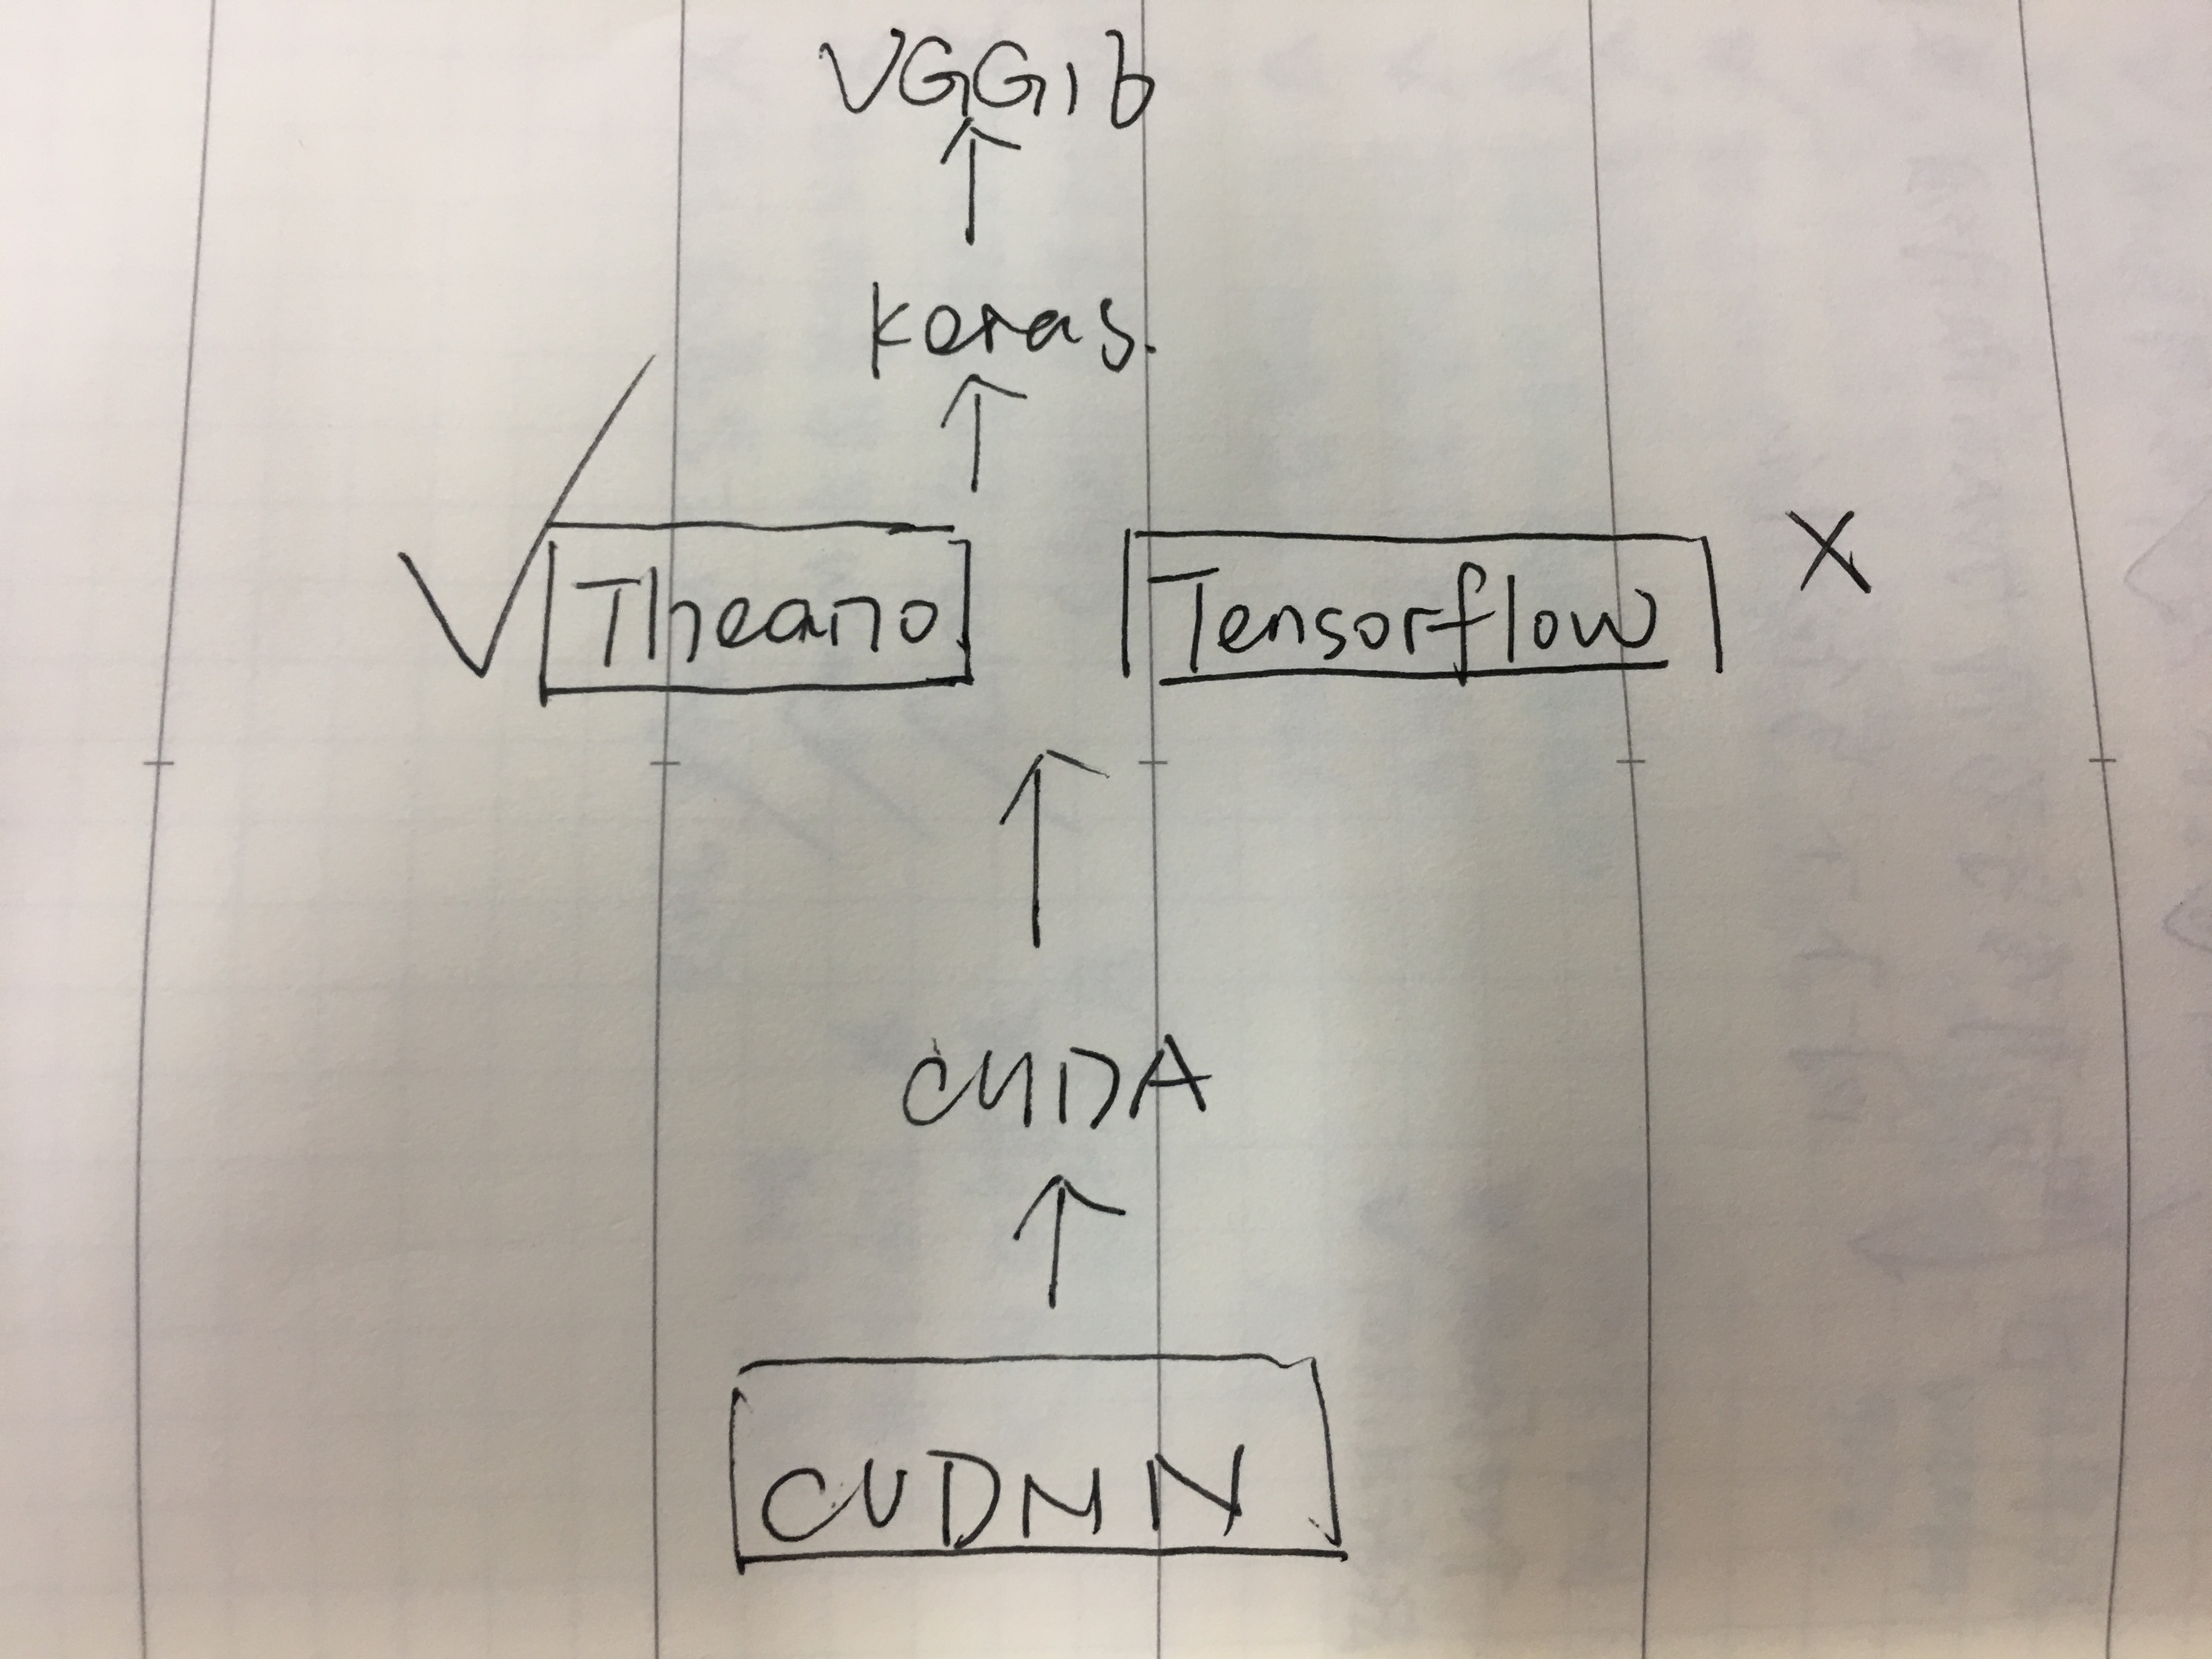 VGG16
keras.
Theano Tensorflow X
CUDA
CUDNN